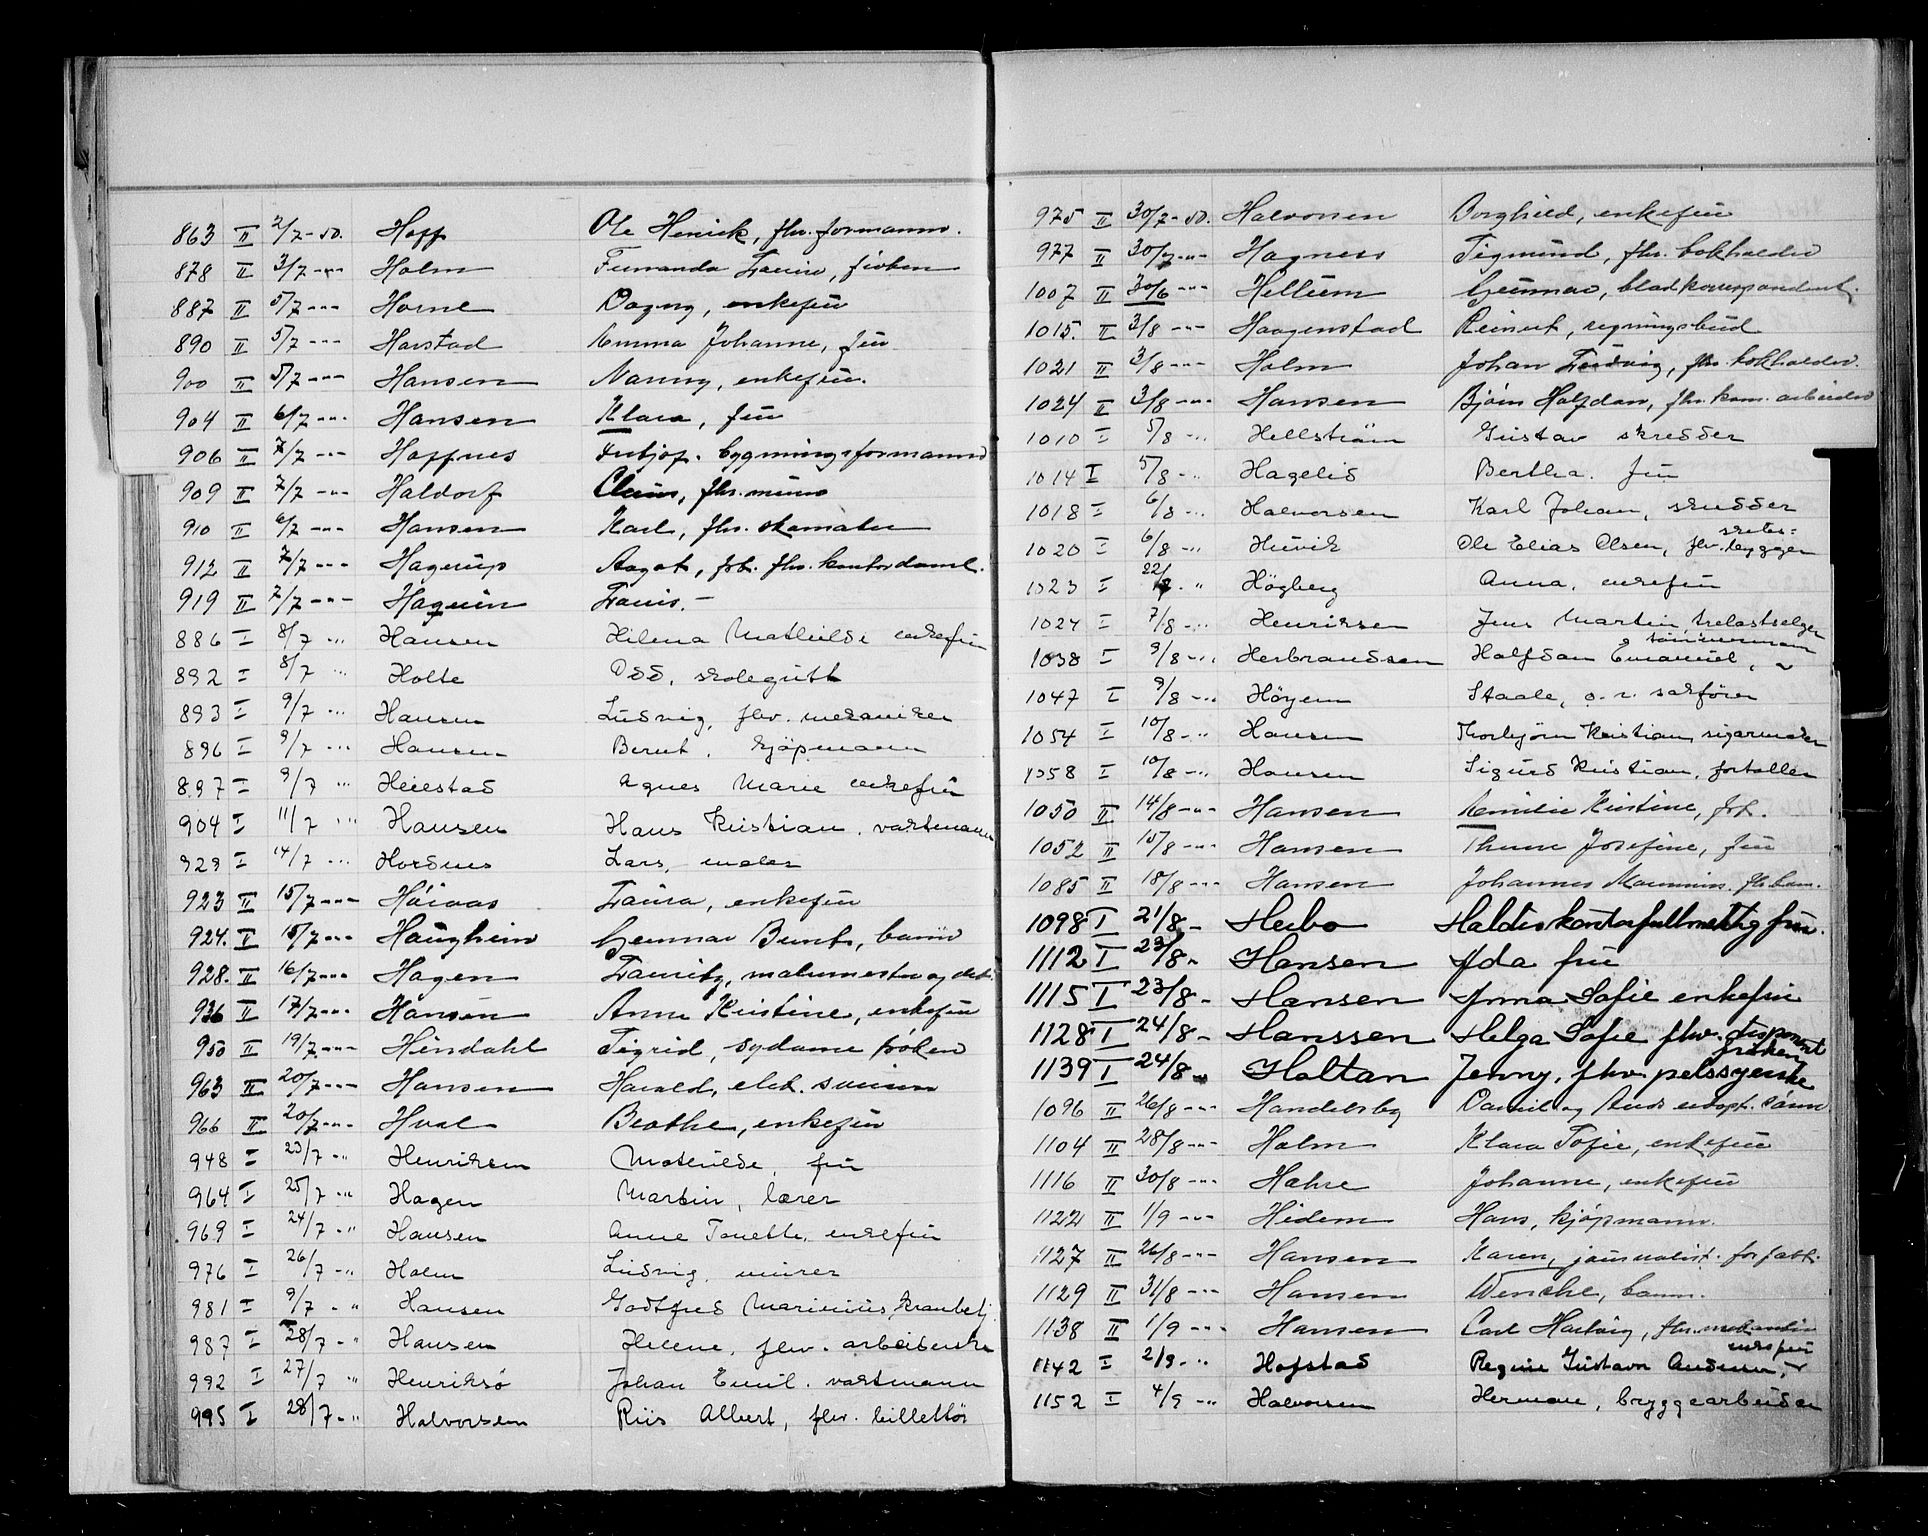 863 II 2/7-50. Hoff Ole Henrick, fhv. formann.
878 II 3/7 -"- Holm Fernanda Louise, frøken
887 II 5/7 -"- Horne Dagny, enkefru
890 II 5/7 -"- Harstad Emma Johanne, fru
900 II 5/7 -"- Hansen Nanny, enkefru.
904 II 6/7 -"- Hansen Klara, fru
906 II 7/7 -"- Haffnes bygningsformann
909 II 7/7 -"- Haldorf fhv. murer
910 II 6/7 -"- Hansen Karl, fhv. skomaker
912 II 7/7 -"- Hagerup Aagot, frk. fhv. kontordame.
919 II 7/7 -"- Haguin Louis. -
886 I 8/7 -"- Hansen Helena Mathilde enkefru
892 I 8/7 -"- Holte Odd, skolegutt
893 I 9/7 -"- Hansen Ludvig, fhv. mekaniker
896 I 9/7 -"- Hansen Bernt, kjøpmann
897 I 9/7 -"- Heiestad Agnes Marie enkefru
904 I 11/7 -"- Hansen Hans Kristian, vaktmann
929 I 14/7 -"- Hordnes Lars, maler
923 II 15/7 -"- Høiaas Laura, enkefru
924. II 15/7 -"- Haugheim Gunnar Bernt, barn
928. II 16/7 -"- Hagen Lauritz, malermester og
936 II 17/7 -"- Hansen Anne Kristine, enkefru
950 II 19/7 -"- Hendahl Sigrid, sydame frøken
963 II 20/7 -"- Hansen Harald, elek.
966 II 20/7 -"- Hval Beathe, enkefru
948 I 23/7 -" Henriksen Mathilde, fru
964 I 25/7 -" Hagen Martin, lærer
969 I 24/7 -" Hansen Anne Tonette, enkefru
976 I 26/7 -" Holm Ludvig, murer
981 I 9/7 -" Hansen Godtfred Marinius, kranbetj.
987 I 28/7 -" Hansen Helene, fhv. arbeiderske
992 I 27/7 -" Henriksø Johan Emil, vaktmann
995 I 28/7 -" Halvorsen Riis Albert, fhv. billettør
975 II 30/7-50. Halvorsen Borghild, enkefru
977 II 30/7 -"- Hagness Sigmund, fhv. bokholder
1007 II 30/6 -"- Hellum Gunnar, bladkorrespondent.
1015. II 3/8 -"- Haagenstad Reinert, regningsbud
1021 II 3/8 -"- Holm Johan Ludvig, fhv. bokholder.
1024 II 3/8 -"- Hansen Bjørn Halfdan, fhv. kom. arbeider
1010 I 5/8 -" Hellstrøm Gustav skredder
1014 I 5/8 -" Hagelid Bertha. fru
1018 I 6/8 -" Halvorsen Karl Johan, skredder
1020 I 6/8 -" Huvik Ole Elias Olsen, fhv. skotøy=
1023 I 22/7 -" Högberg Anna, enkefru
1024 I 7/8 -" Henriksen Jens Martin trelastselger
1038 I 9/8 -" Herbrandsen Halfdan Emanuel, tømmermann
1047 I 9/8 -" Höyem Staale, o. r. sakfører
1054 I 10/8 -" Hansen Thorbjørn Kristian, sigarmaker
1058 I 10/8 -" Hansen Sigurd Kristian, fortoller
1050 II 14/8 -"- Hansen Emilie Kristine, frk.
1052 II 15/8 -"- Hansen Thine Josefine, fru
1085 II 18/8 -"- Hansen Johannes
1098 I 21/8 - Heibo Haldis kontorfullmektig fru.
1112 I 23/8 - Hansen Ida fru
1115 I 23/8 - Hansen Anna Sofie enkefru
1128 I 24/8 - Hanssen Helga Sofie fhv. disponent frøken
1139 I 24/8 - Holtan Jenny, fhv. pelssyerske
1096 II 26/8 -"- Handelsby Daniel og adopt. sønn
1104 II 28/8 -"- Holm Klara Sofie, enkefru
1116 II 30/8 -"- Hahre Johanne, enkefru
1122 II 1/9 -"- Hidem Hans, kjøpmann.
1127 II 26/8 -"- Hansen Karen, journalist. forfatt.
1129 II 31/8 -"- Hansen Wenche, barn.
1138 II 1/9 -"- Hansen Carl Hartvig, fhv. mekaniker
1142 I 2/9 -" Hofstad Regine Gustava Andersen, enkefru
1152 I 4/9 -" Halvorsen Herman, bryggearbeider